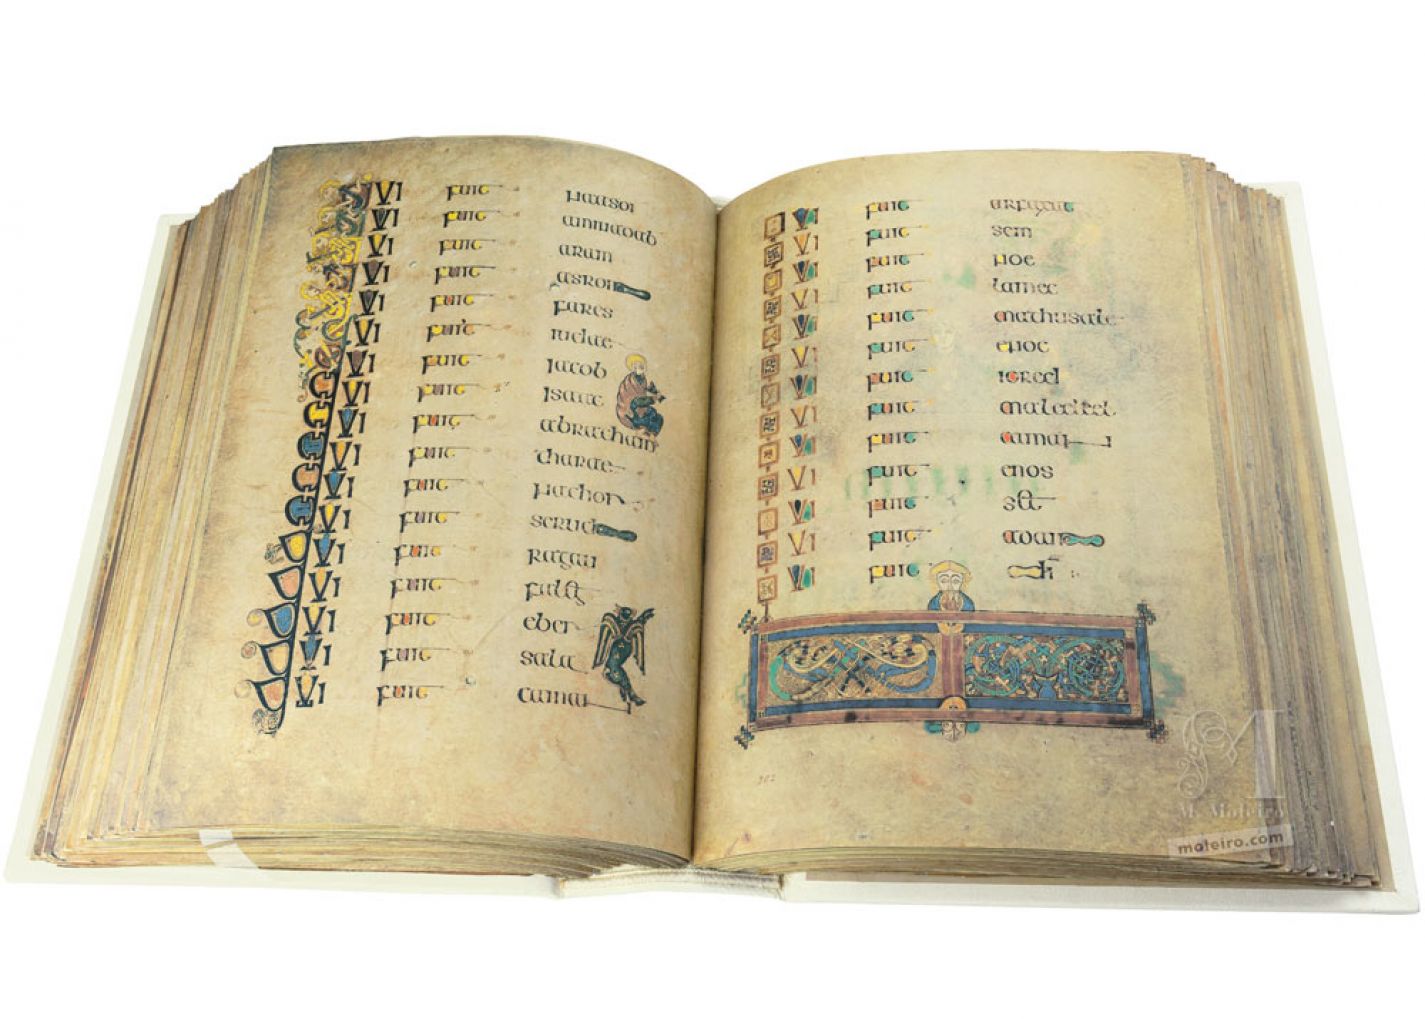 QUI fuit naason
QUI fuit aminadab
QUI fuit aram
QUI fuit asron
QUI fuit fares
QUI fuit iudae
QUI fuit iacob
QUI fuit isaac
QUI fuit abracham
QUI fuit tharae
QUI fuit nachor
QUI fuit seruch
QUI fuit ragau
QUI fuit falec
QUI fuit eber
QUI fuit sala
QUI fuit camar
QUI fuit arfaxat
QUI fuit sem
QUI fuit noe
QUI fuit lamec
QUI fuit mathusale
QUI fuit enoc
QUI fuit iared
QUI fuit maleleel
QUI fuit caman
QUI fuit enos
QUI fuit set
QUI fuit adam
QUI fuit di
302
M
M. Moleiro
moleiro.com